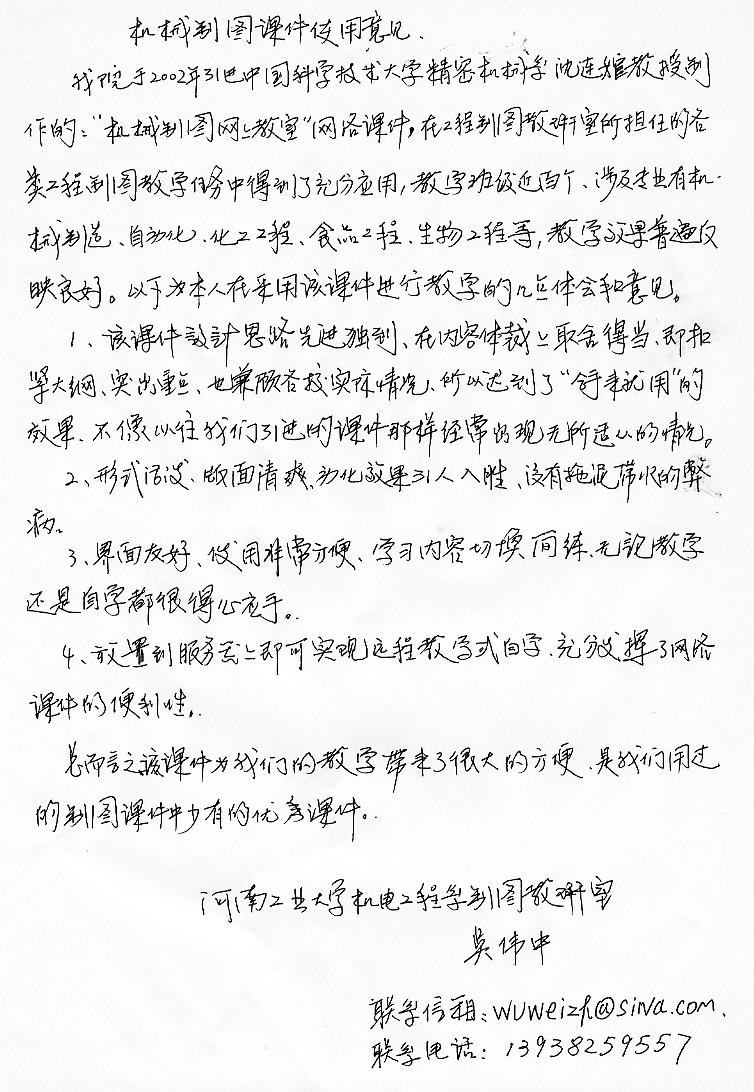 机械制图课件使用意见.
我院于2002年引进中国科学技术大学精密机械系沈连婠教授制
作的："机械制图网上教室"网络课件,在工程制图教研室所担任的各
类工程制图教学任务中得到了充分应用,教学班级近百个、涉及专业有机
械制造、自动化、化工工程、食品工程、生物工程等,教学效果普遍反
映良好。以下为本人在采用该课件进行教学的几点体会和意见。
1、该课件设计思路先进独到、在内容体裁上取舍得当、即扣
紧大纲、突出重点、也兼顾各校实际情况、所以达到了"拿来就用"的
效果.不像以往我们引进的课件那样经常出现无所适从的情况。
2、形式活泼、版面清爽、动化效果引人入胜、没有拖泥带水的弊
病。
3、界面友好、使用非常方便、学习内容切换简练.无论教学
还是自学都很得心应手。
4、放置到服务器上即可实现远程教学或自学、充分发挥了网络
课件的便利性。
总而言之该课件为我们的教学带来了很大的方便.是我们用过
的制图课件中少有的优秀课件。
河南工业大学机电工程系制图教研室
吴伟中
联系信箱：wuweizh@sina.com.
联系电话：13938259557